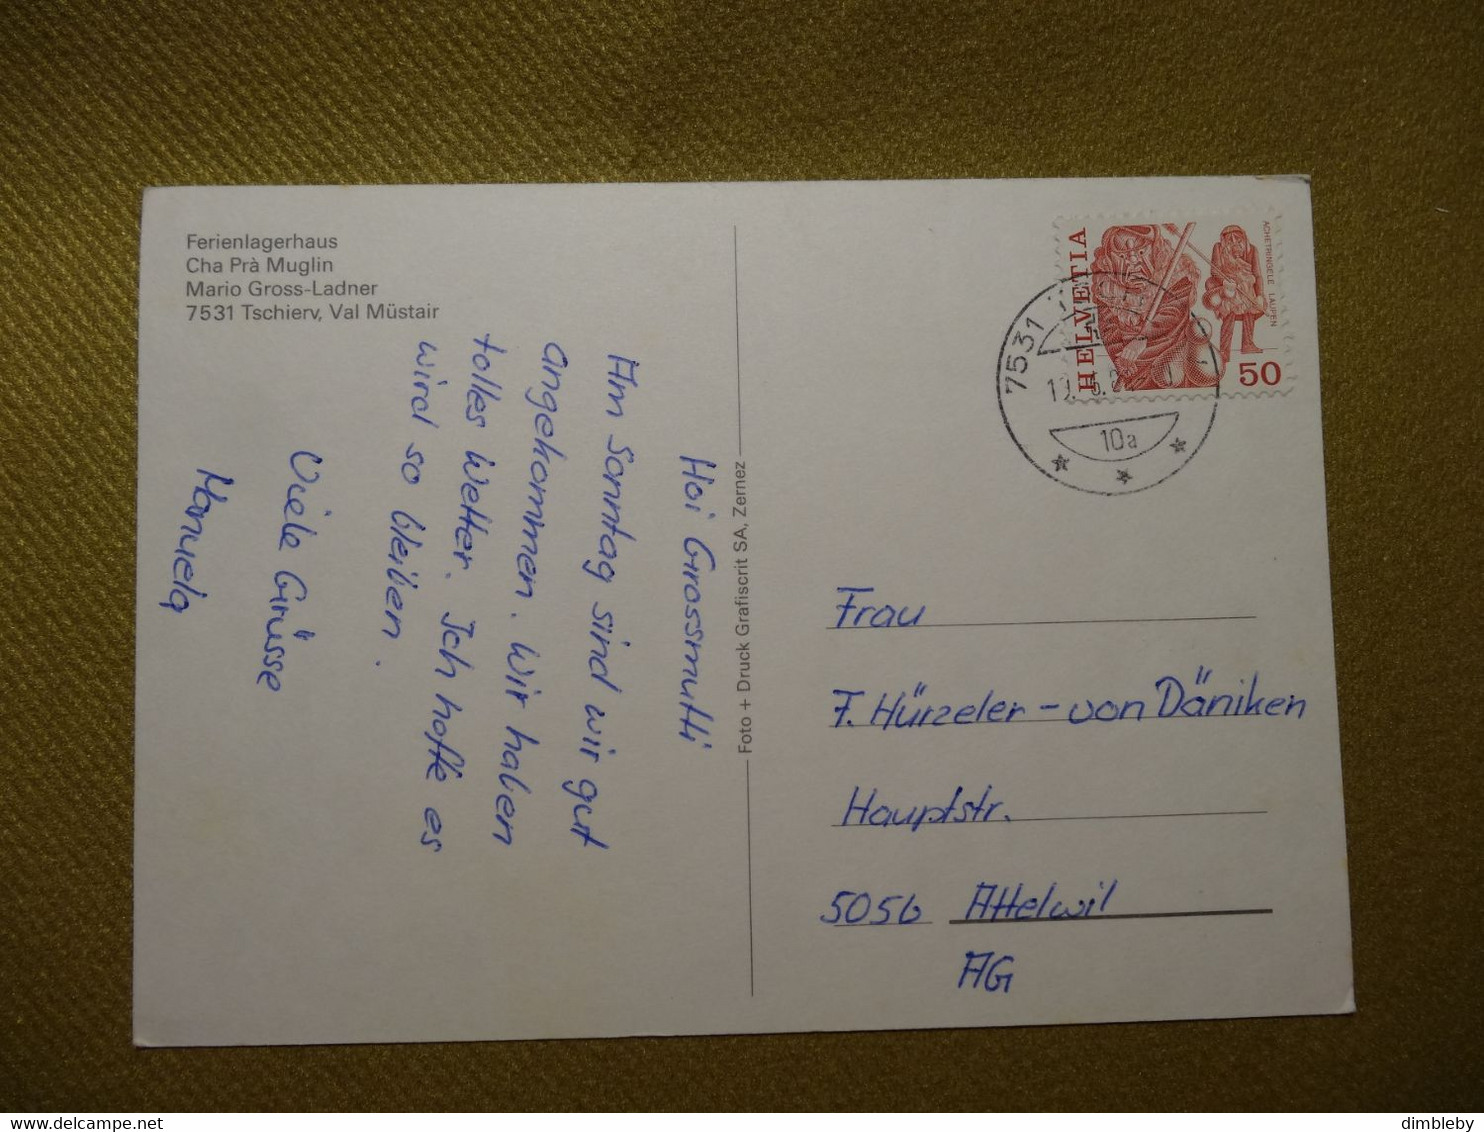 Ferienlagerhaus
Cha Prà Muglin
Mario Gross-Ladner
7531 Tschierv, Val Müstair
Hoi Grossmutti
Am Sonntag sind wir gut
angekommen. Wir haben
tolles Wetter. Ich hoffe es
wird so bleiben.
Viele Grüsse
Manuela
Foto + Druck Grafiscrit SA, Zernez
HELVETIA
ACHETRINGELE LAUPEN
50
7531
10a
Frau
F. Hürzeler-von Däniken
Hauptstr.
5056 Attelwil
AG
dimbleby